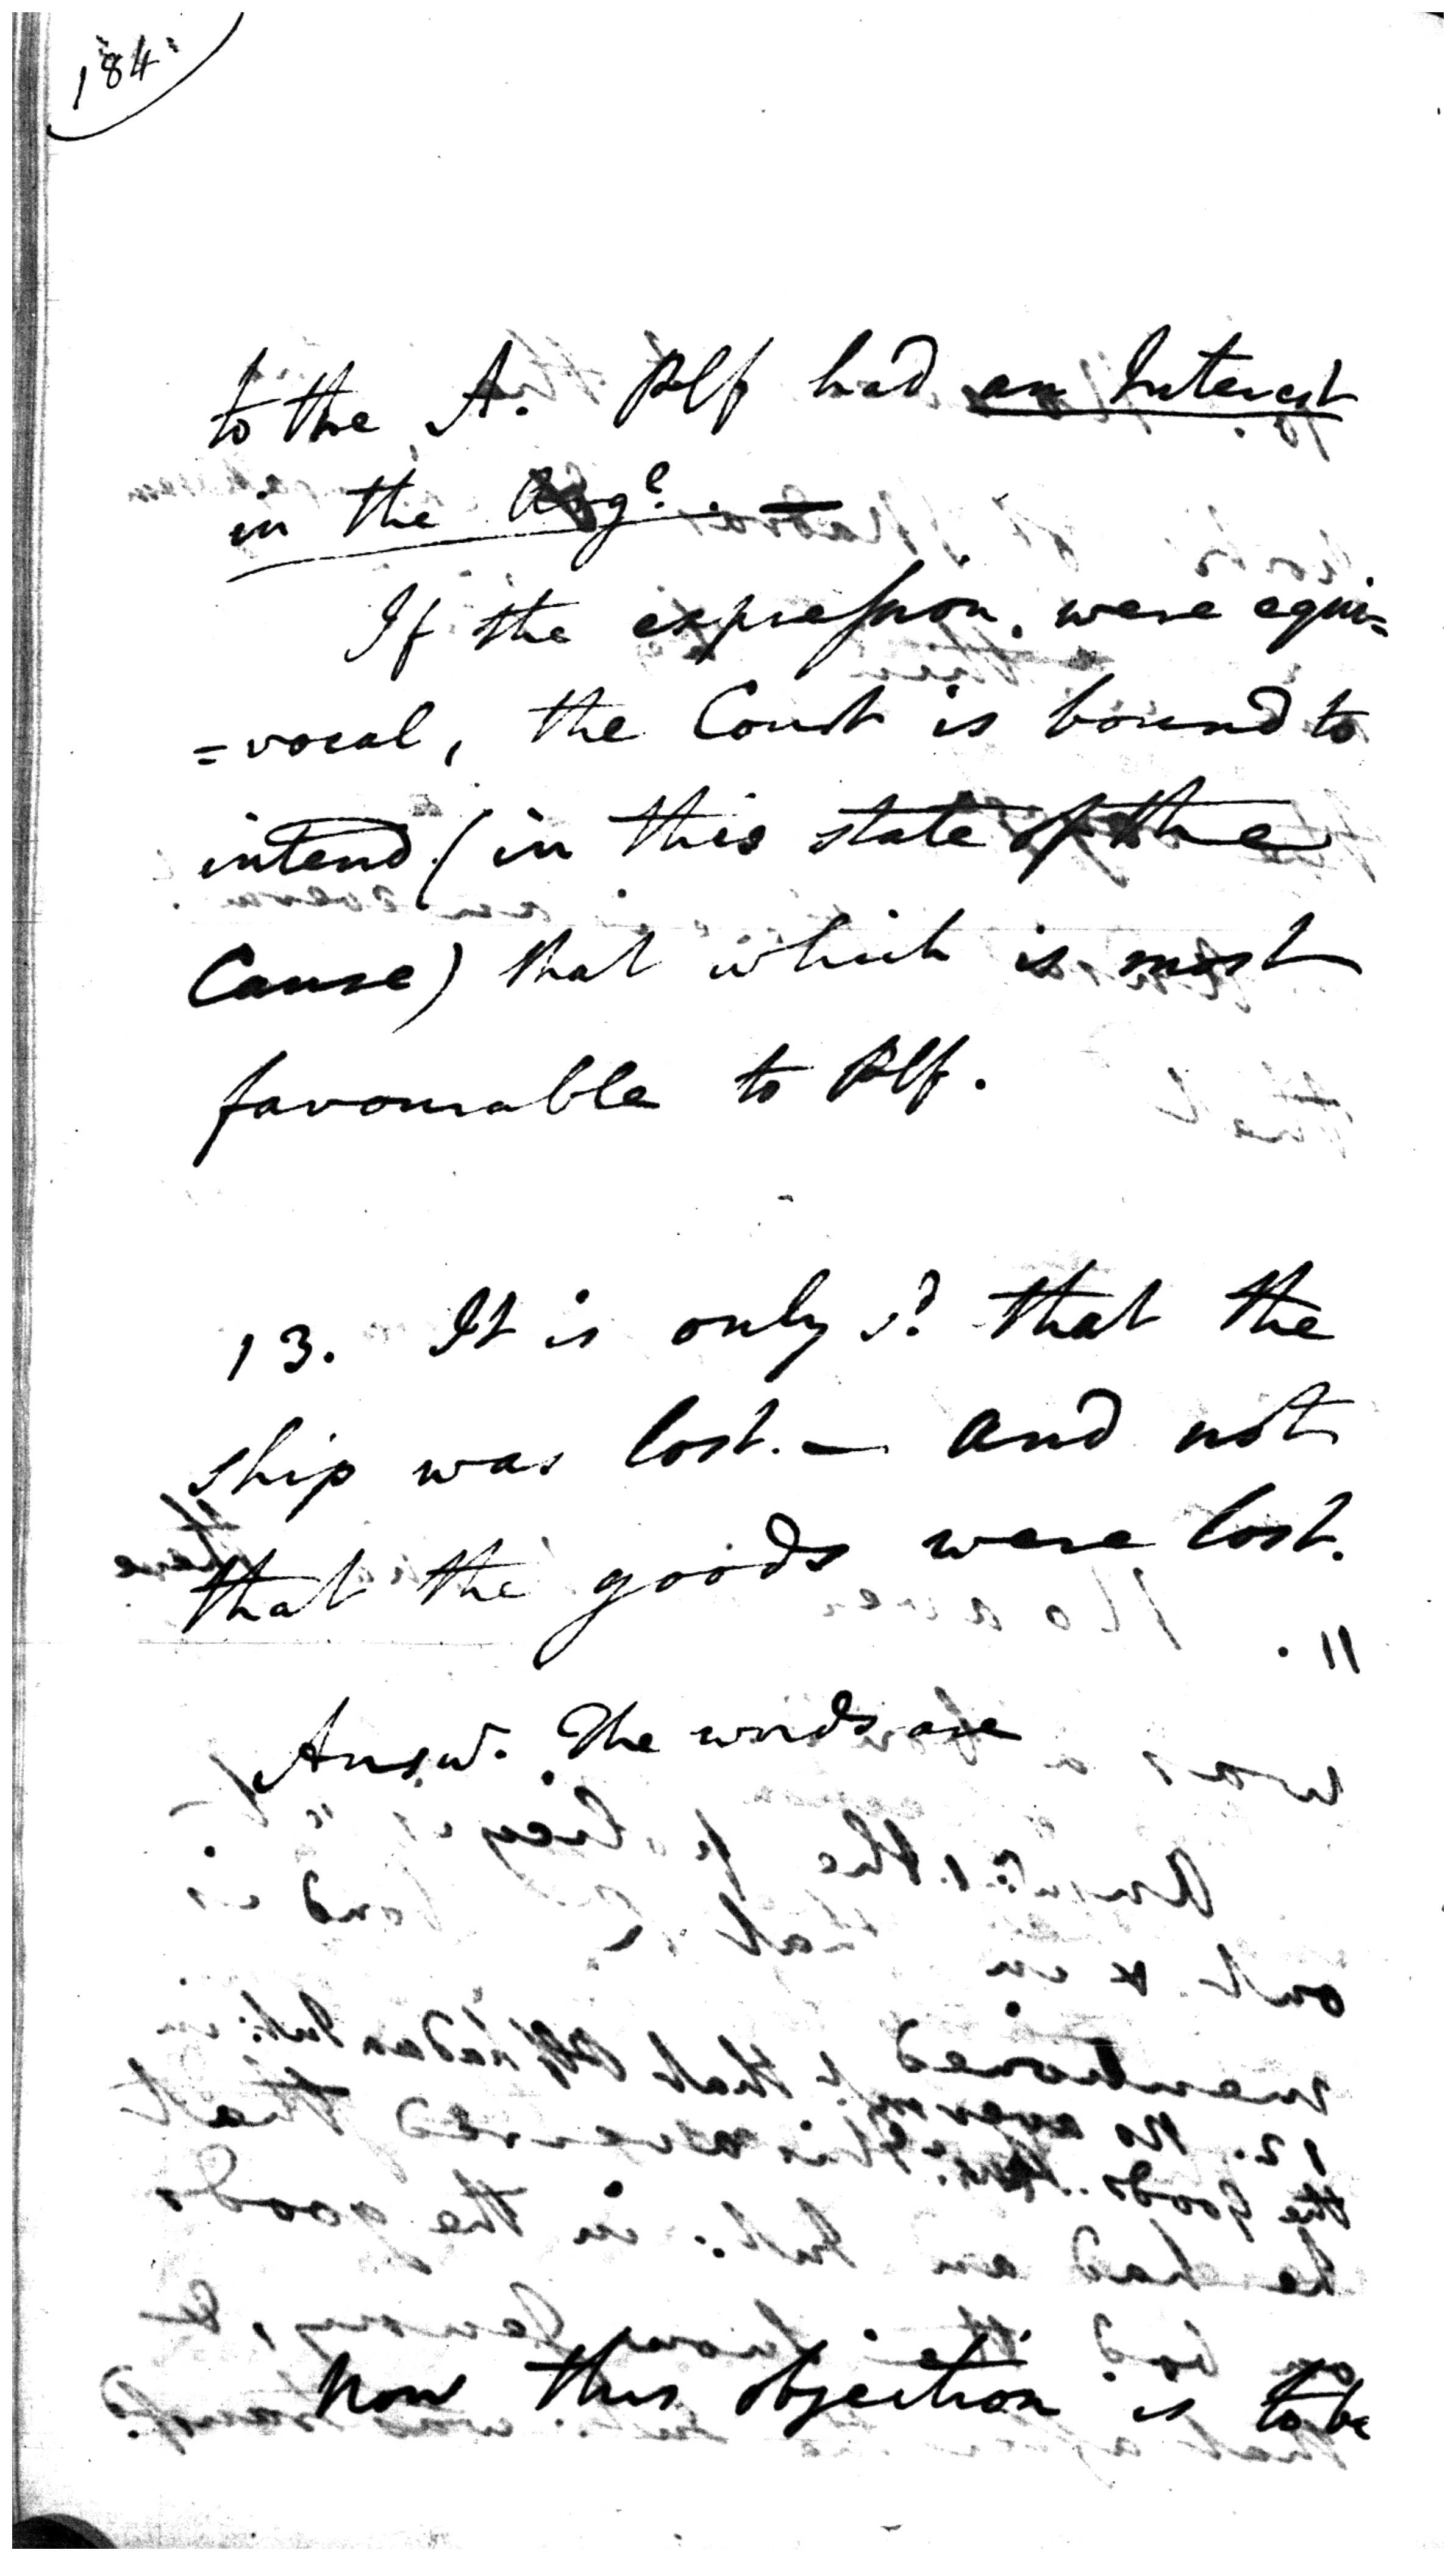 184
to the A. Plf had an Interest
in the Arg<sup>e</sup>. —
If the expression were equi=
=vocal, the Court is bound to
intend (in this state of the
Cause) that which is most
favourable to Plf.
13. It is only s<sup>d</sup> that the
ship was lost. — and not
that the goods were lost.
Answ. The words are
Now this objection is to be